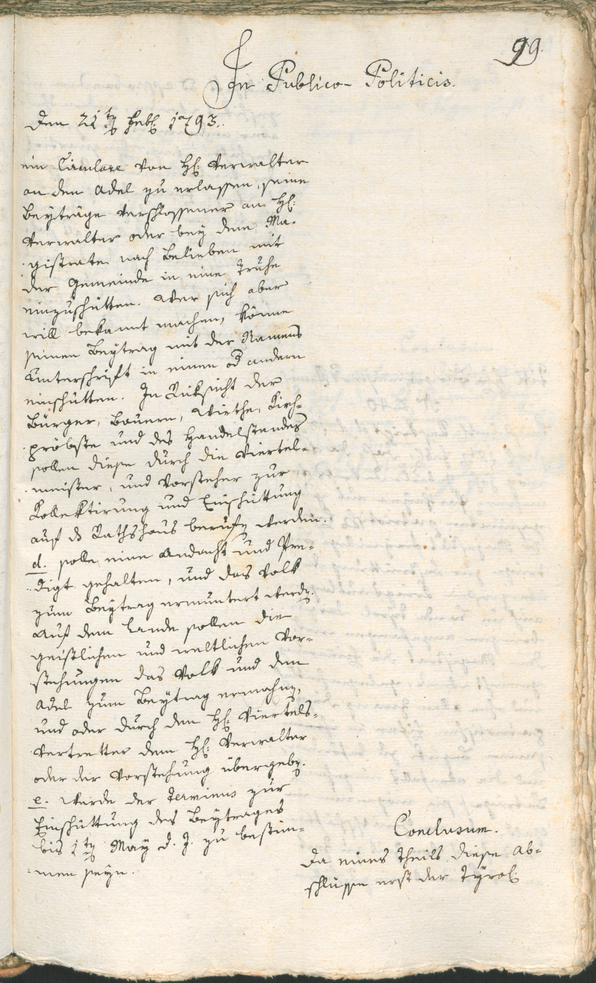 99.
In Publico-Politicis.
Den 21ten Febr. 1793.
ein Circulare von H. Verwalter
an den Adel zu erlassen, seine
Beyträge verschlossener an H.
Verwalter oder bey dem Ma-
gistrate nach Belieben mit
der Gemeinde in eine Truhe
einzuschütten. Wer sich aber
will bekannt machen, könne
seinen Beytrag mit der Namens
Unterschrift in einen andern
einschütten. In Riksicht der
Bürger, Bauern, Wirthe, Kirch-
pröbste und des Handelstandes
sollen diese durch die Viertel-
meister, und Vorsteher zur
Kollektirung und Einschüttung
auf ds Rathshaus berufen werden.
d. solle eine Andacht und Pre-
digt gehalten, und das Volk
zum Beytrag ermuntert werden.
Auf dem Lande sollen die
geistlichen und weltlichen Vor-
stehungen das Volk und den
Adel zum Beytrag ermahnen,
und oder durch den H. Viertels-
Vertretter dem H. Verwalter
oder der Vorstehung übergeben.
e. werde der Terminus zur
Einschüttung des Beytrages
bis 1ten May d. J. zu bestim-
men seyn.
Conclusum.
Da eines Theils diese Ab-
schlüsse erst der Tyrol.